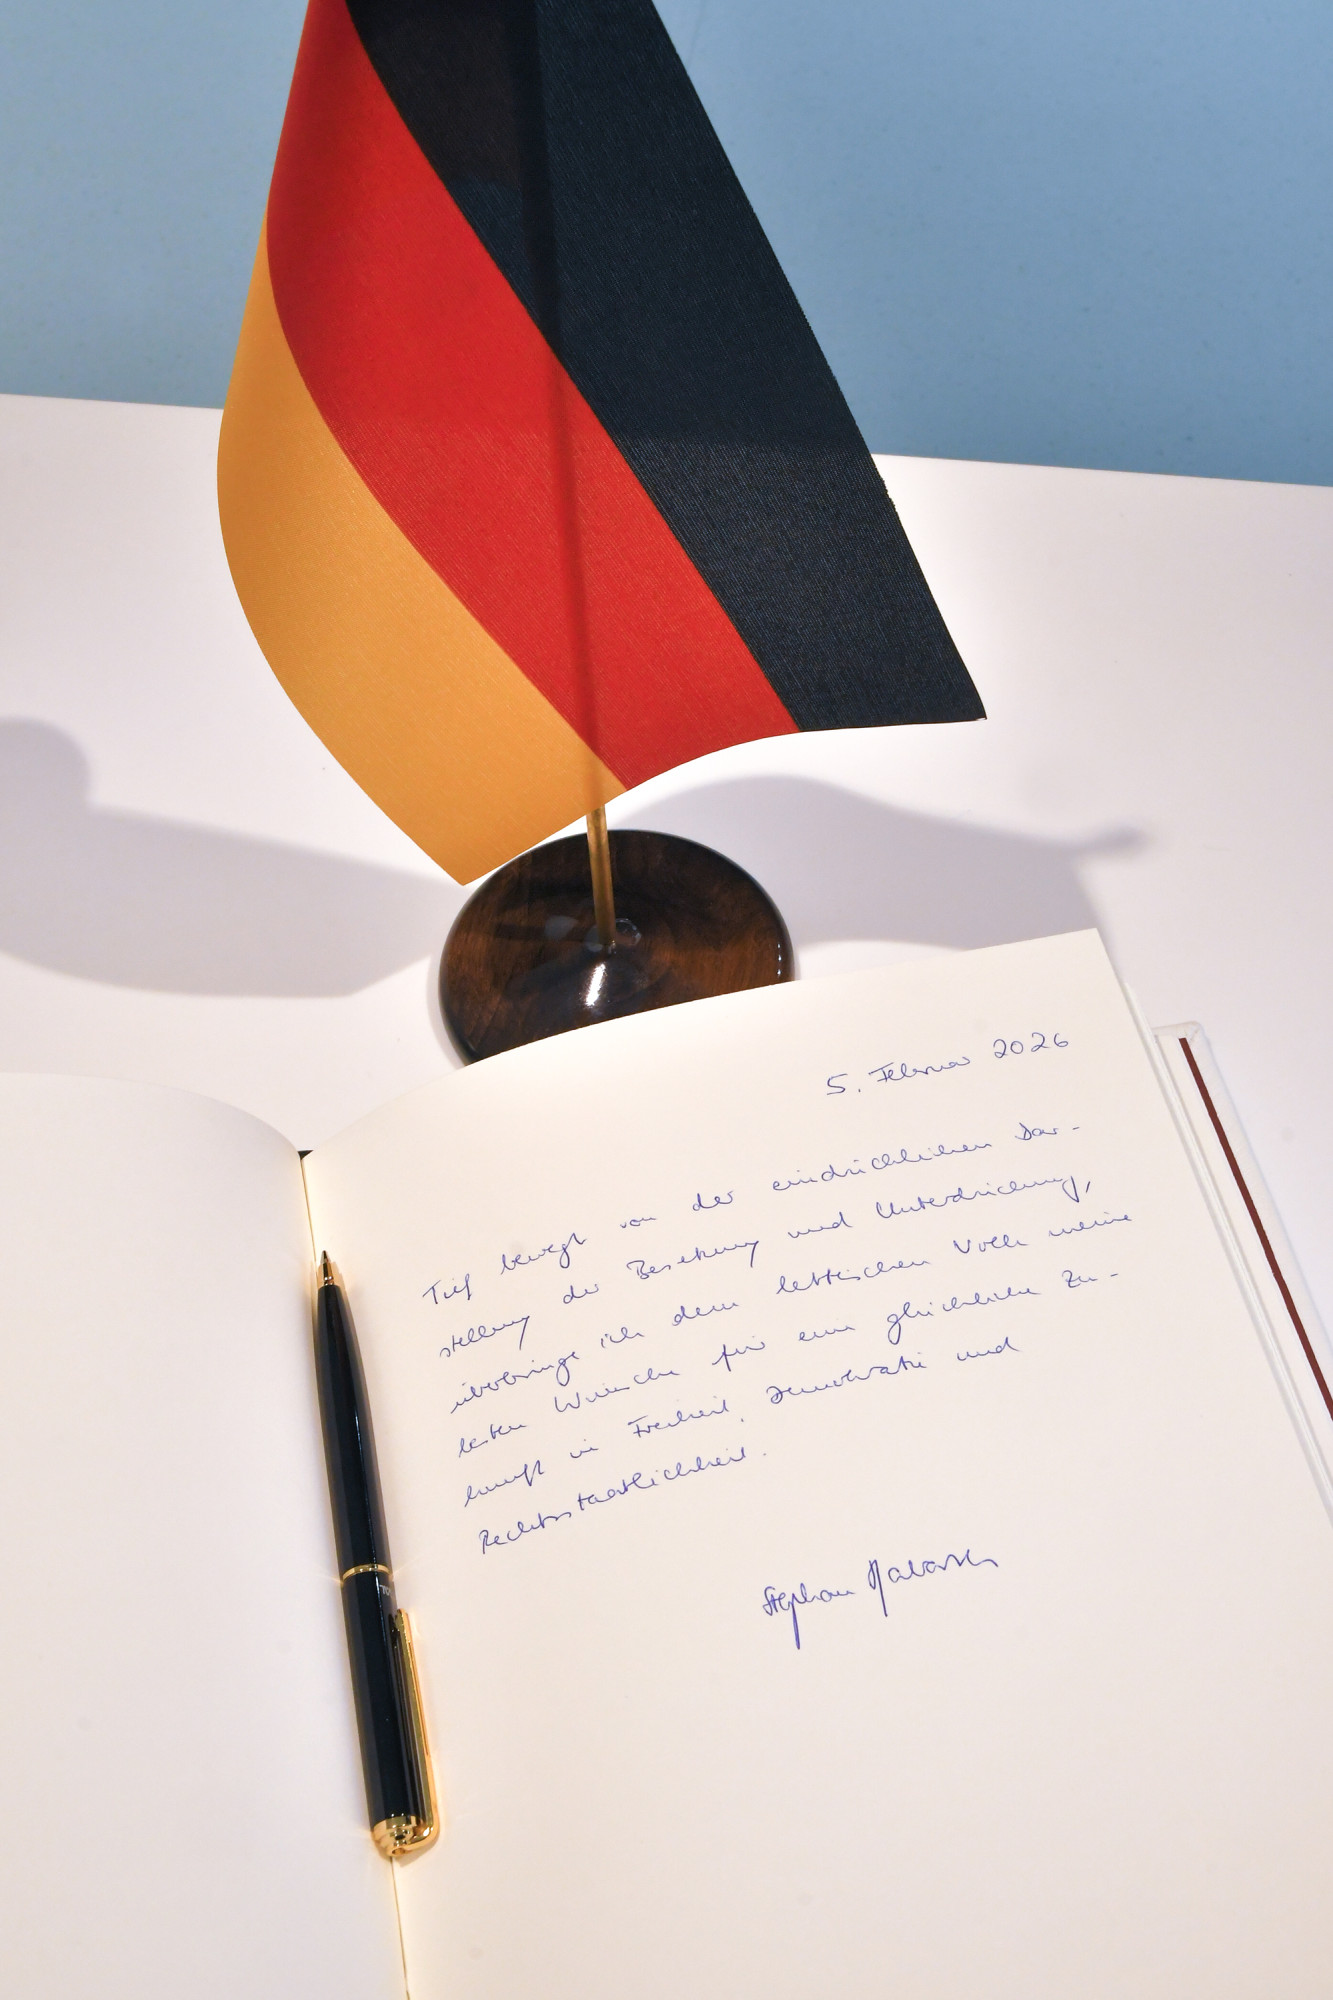 5. Februar 2026
Tief bewegt von der eindrücklichen Dar-
stellung der Besetzung und Unterdrückung,
überbringe ich dem lettischen Volk meine
besten Wünsche für eine glückliche Zu-
kunft in Freiheit, Demokratie und
Rechtsstaatlichkeit.
Stephan